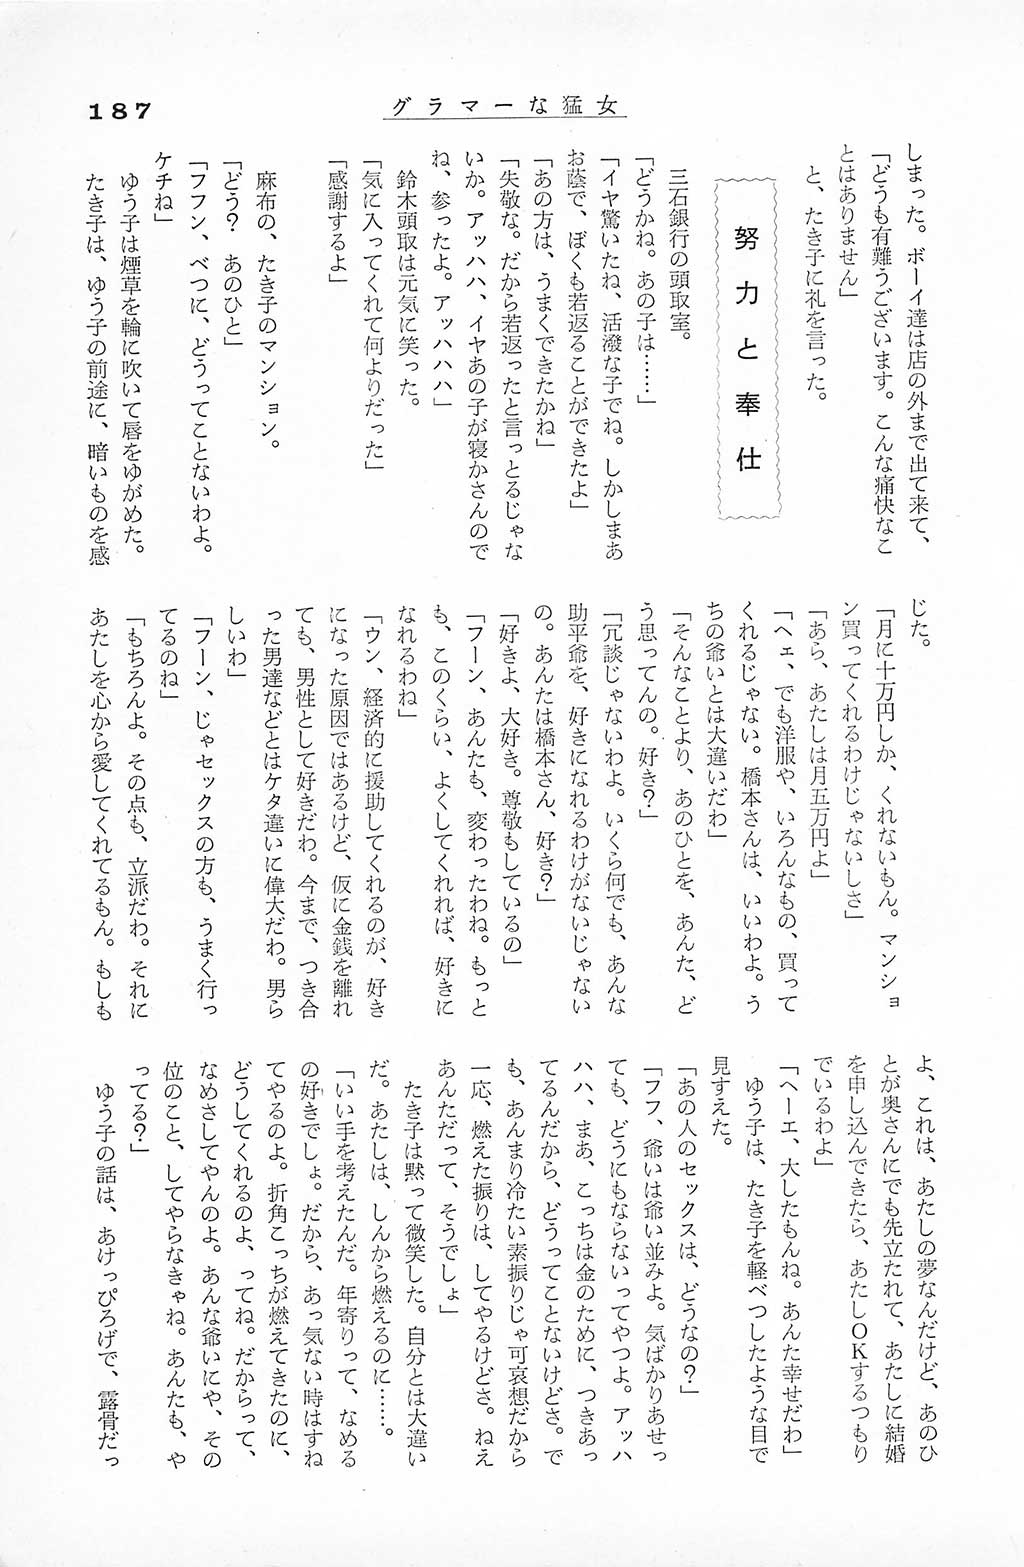 187
グラマーな猛女
しまった。ボーイ達は店の外まで出て来て、
「どうも有難うございます。こんな痛快なこ
とはありません」
と、たき子に礼を言った。
努力と奉仕
三石銀行の頭取室。
「どうかね。あの子は……」
「イヤ驚いたね、活潑な子でね。しかしまあ
お蔭で、ぼくも若返ることができたよ」
「あの方は、うまくできたかね」
「失敬な。だから若返ったと言っとるじゃな
いか。アッハハ、イヤあの子が寝かさんので
ね、参ったよ。アッハハハ」
鈴木頭取は元気に笑った。
「気に入ってくれて何よりだった」
「感謝するよ」
麻布の、たき子のマンション。
「どう？　あのひと」
「フフン、べつに、どうってことないわよ。
ケチね」
ゆう子は煙草を輪に吹いて唇をゆがめた。
たき子は、ゆう子の前途に、暗いものを感
じた。
「月に十万円しか、くれないもん。マンショ
ン買ってくれるわけじゃないしさ」
「あら、あたしは月五万円よ」
「ヘェ、でも洋服や、いろんなもの、買って
くれるじゃない。橋本さんは、いいわよ。う
ちの爺いとは大違いだわ」
「そんなことより、あのひとを、あんた、ど
う思ってんの。好き？」
「冗談じゃないわよ。いくら何でも、あんな
助平爺を、好きになれるわけがないじゃない
の。あんたは橋本さん、好き？」
「好きよ、大好き。尊敬もしているの」
「フーン、あんたも、変わったわね。もっと
も、このくらい、よくしてくれれば、好きに
なれるわね」
「ウン、経済的に援助してくれるのが、好き
になった原因ではあるけど、仮に金銭を離れ
ても、男性として好きだわ。今まで、つき合
った男達などとはケタ違いに偉大だわ。男ら
しいわ」
「フーン、じゃセックスの方も、うまく行っ
てるのね」
「もちろんよ。その点も、立派だわ。それに
あたしを心から愛してくれてるもん。もしも
よ、これは、あたしの夢なんだけど、あのひ
とが奥さんにでも先立たれて、あたしに結婚
を申し込んできたら、あたしOKするつもり
でいるわよ」
「ヘーエ、大したもんね。あんた幸せだわ」
ゆう子は、たき子を軽べつしたような目で
見すえた。
「あの人のセックスは、どうなの？」
「フフ、爺いは爺い並みよ。気ばかりあせっ
ても、どうにもならないってやつよ。アッハ
ハハ、まあ、こっちは金のために、つきあっ
てるんだから、どうってことないけどさ。で
も、あんまり冷たい素振りじゃ可哀想だから
一応、燃えた振りは、してやるけどさ。ねえ
あんただって、そうでしょ」
たき子は黙って微笑した。自分とは大違い
だ。あたしは、しんから燃えるのに……。
「いい手を考えたんだ。年寄りって、なめる
の好きでしょ。だから、あっ気ない時はすね
てやるのよ。折角こっちが燃えてきたのに、
どうしてくれるのよ、ってね。だからって、
なめさしてやんのよ。あんな爺いにや、その
位のこと、してやらなきゃね。あんたも、や
ってる？」
ゆう子の話は、あけっぴろげで、露骨だっ